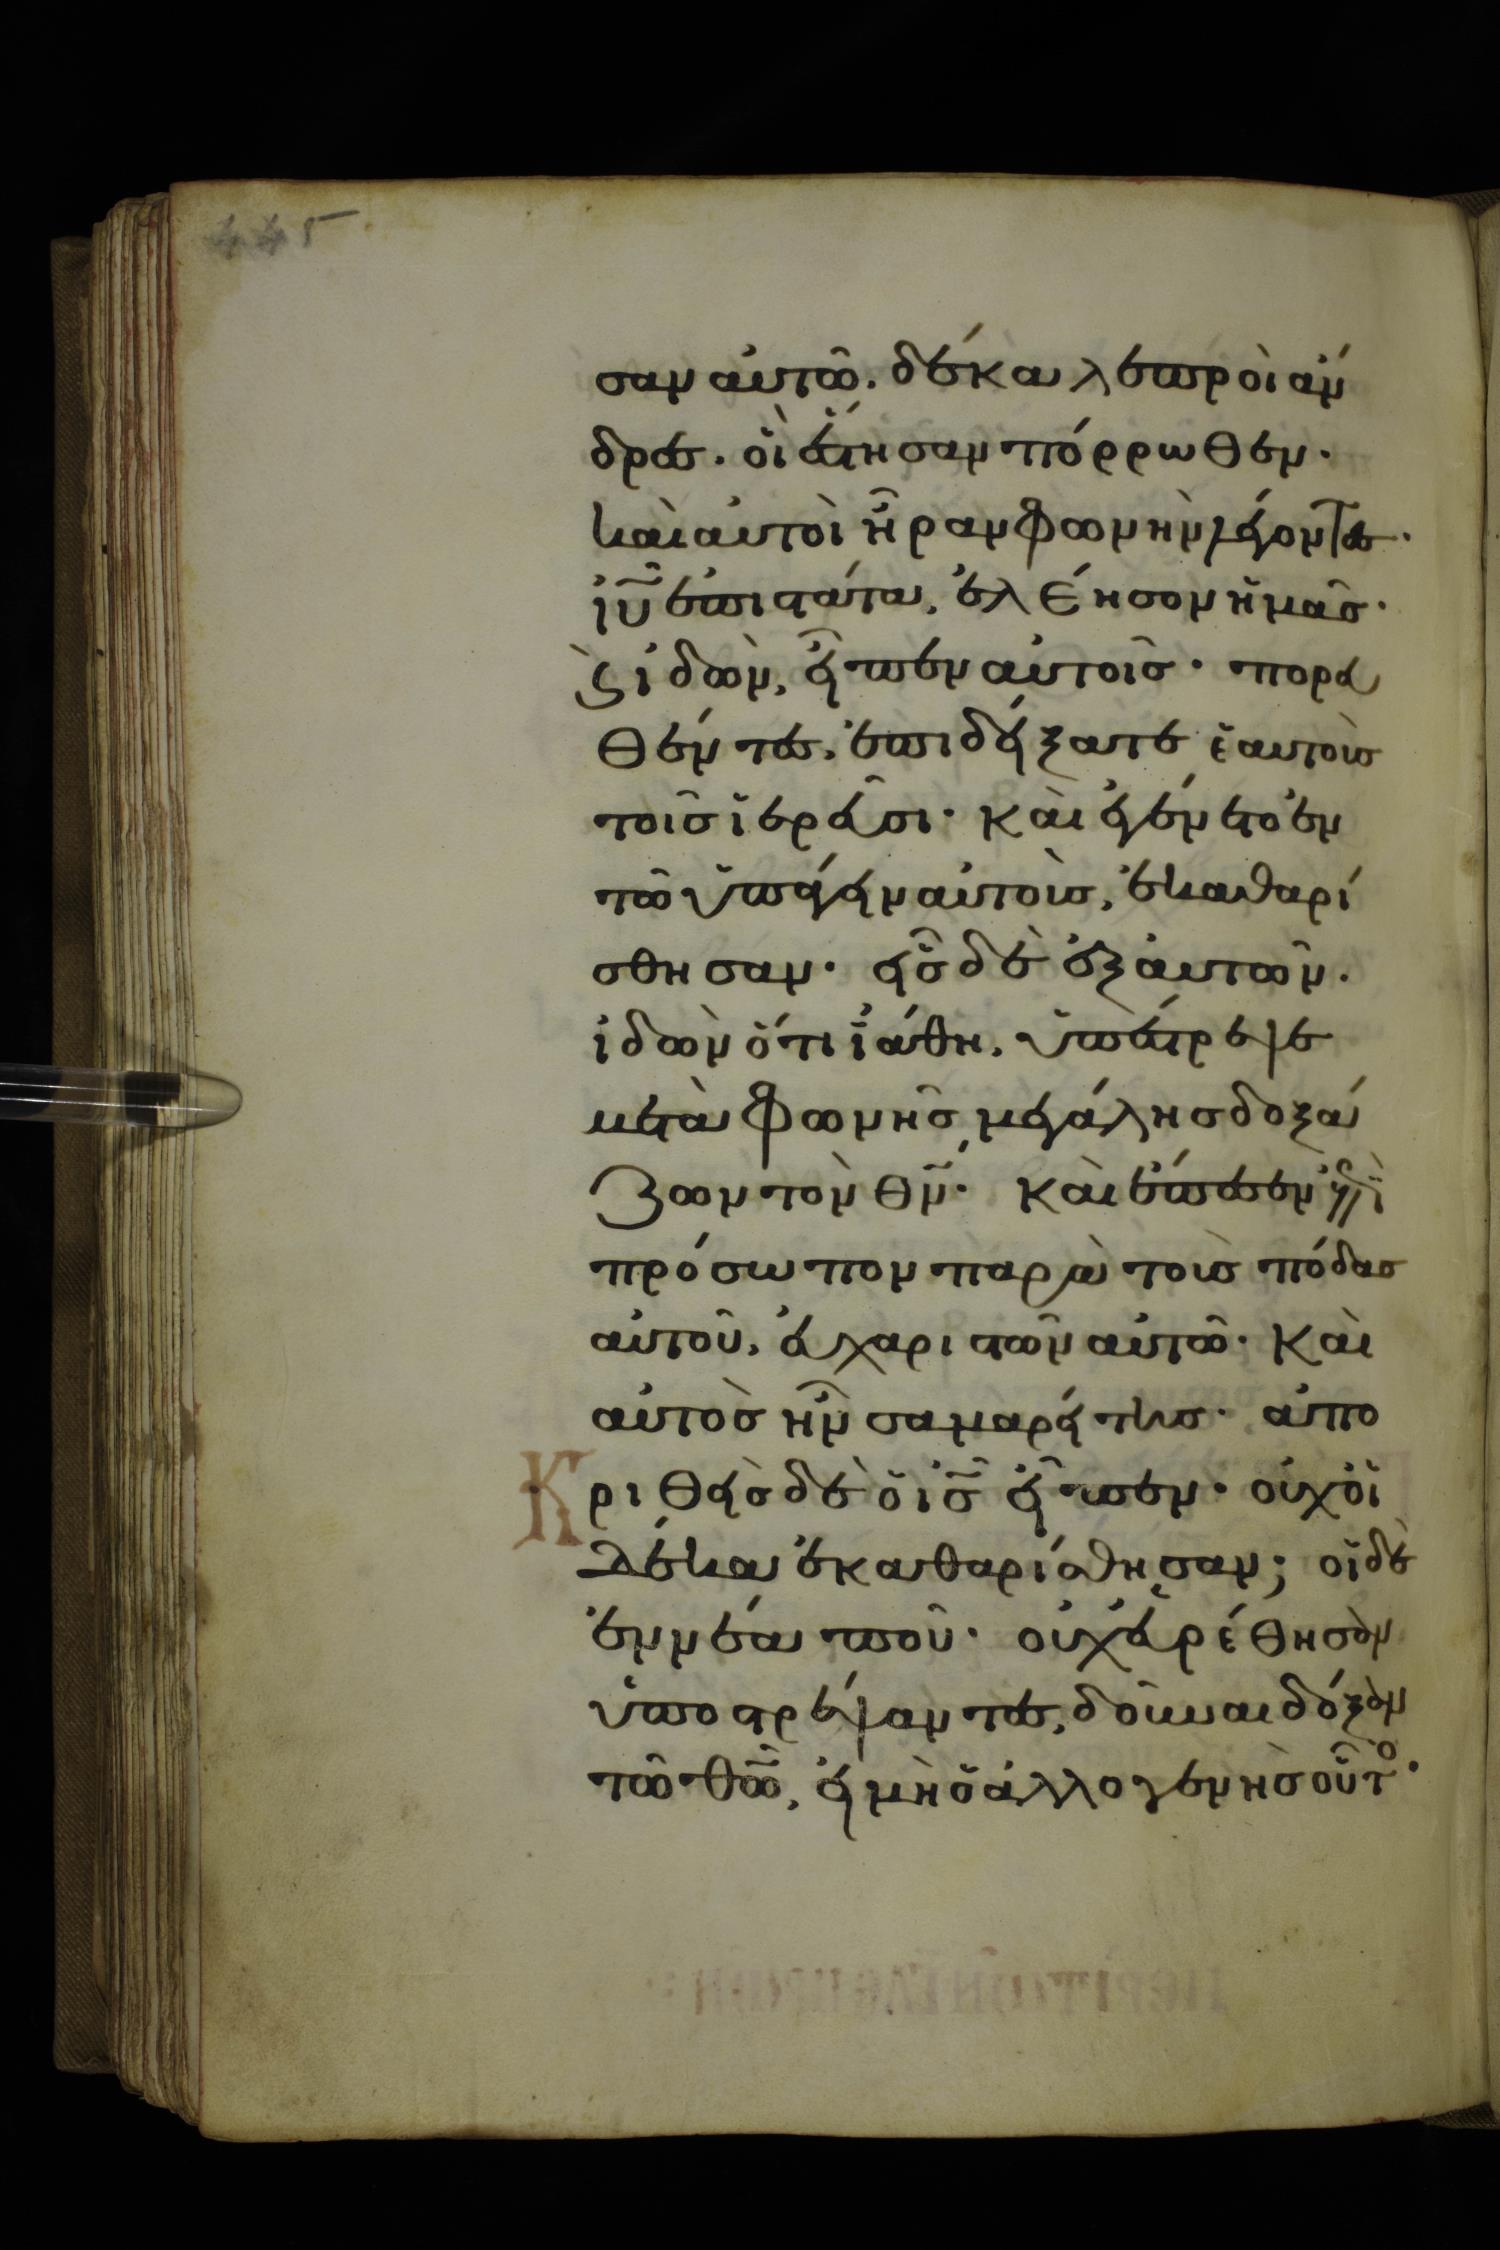 445
σαν αὐτῶ. δέκα λεπροὶ ἄν
δρες. οἳ ἔστησαν πόρρωθεν.
καὶ αὐτοὶ ἦραν φωνὴν λέγοντες.
ἰῦ ἐπιστάτα, ἐλέησον ἡμᾶς.
ϗ ἰδὼν, εἶπεν αὐτοῖς. πορευ
θέντες, ἐπιδείξατε ἑαυτοὺς
τοῖς ἱερεῦσι. καὶ ἐγένετο ἐν
τῶ ὑπάγειν αὐτοὺς, ἐκαθαρί
σθησαν. εἷς δὲ ἐξ αὐτῶν.
ἰδὼν ὅτι ἰάθη, ὑπέστρεψε
μετὰ φωνῆς μεγάλης δοξά
ζων τὸν θν. καὶ ἔπεσεν ἐπὶ
πρόσωπον παρὰ τοὺς πόδας
αὐτοῦ, εὐχαριστῶν αὐτῶ. καὶ
αὐτὸς ἦν σαμαρείτης. ἀπο
Κριθεὶς δὲ ὁ ἰς εἶπεν. οὐχ οἱ
δέκα ἐκαθαρίσθησαν; οἱ δὲ
ἐννέα ποῦ. οὐχ εὑρέθησαν
ὑποστρέψαντες, δοῦναι δόξαν
τῶ θῶ, εἰ μὴ ὁ ἀλλογενὴς οὗτο.